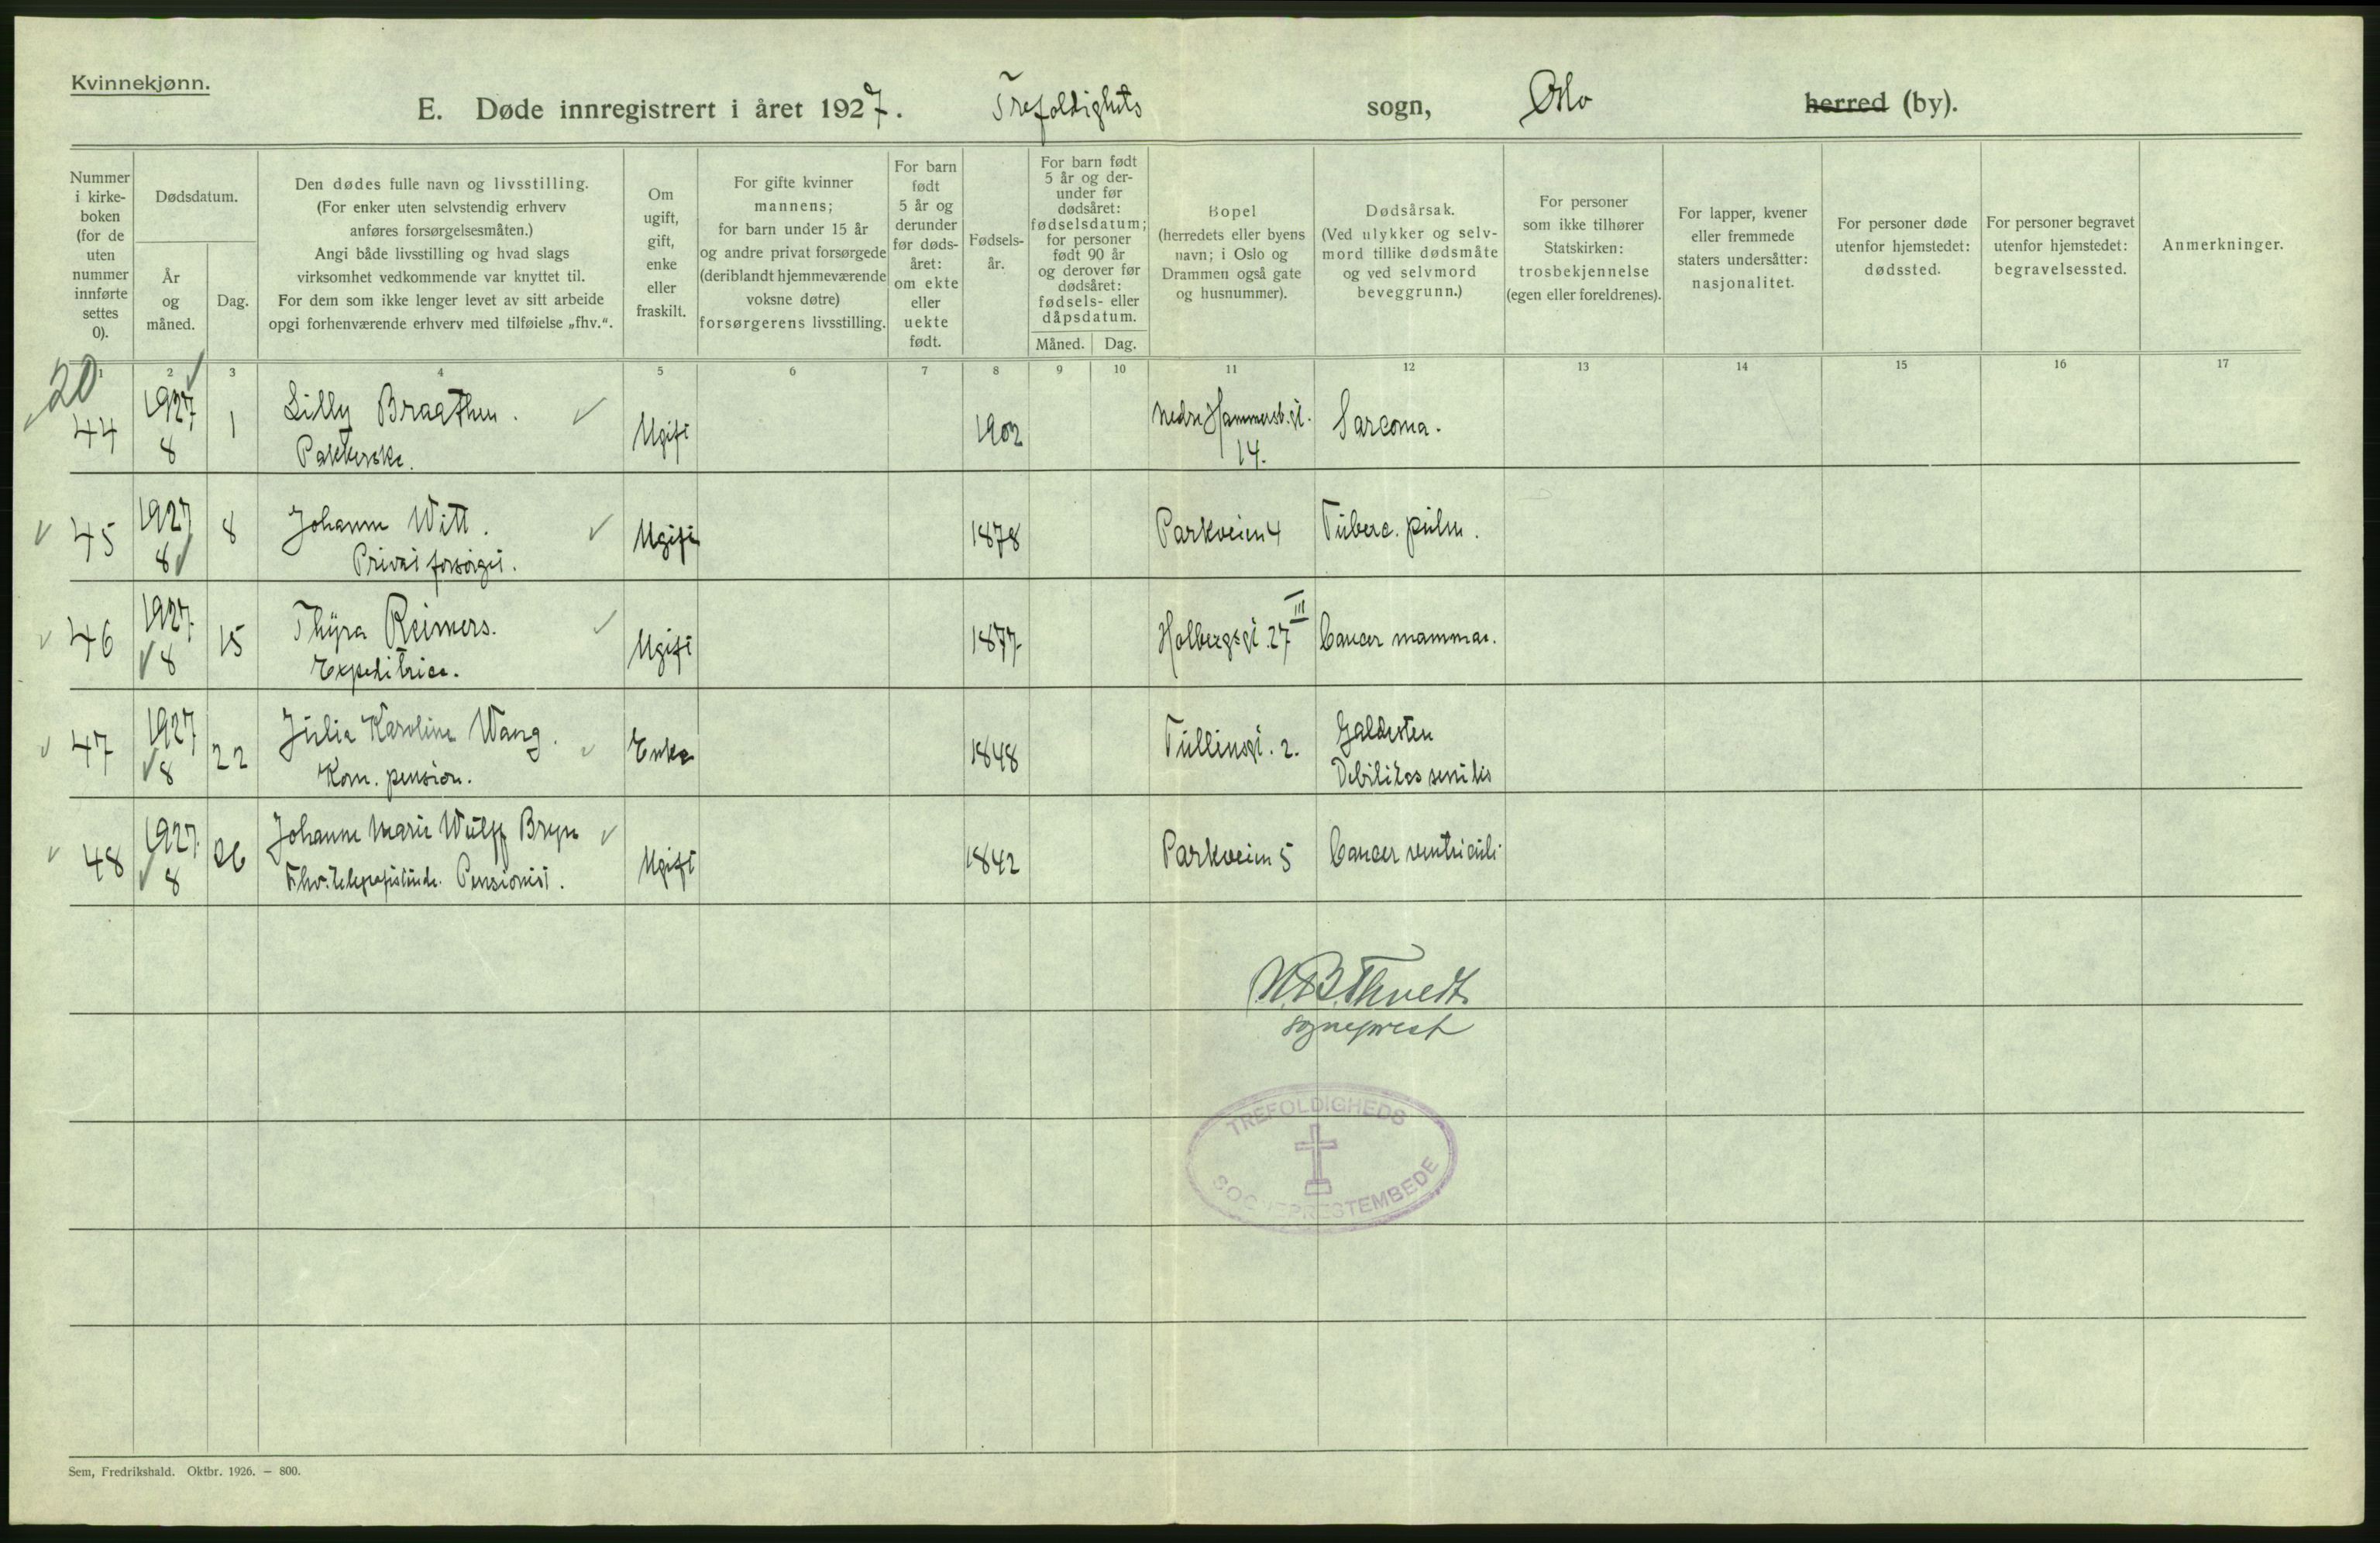 Kvinnekjønn.
E. Døde innregistrert i året 1927. Trefoldighets sogn, Oslo herred (by).
Nummer
i kirke-
boken
(for de
uten
nummer
innførte
settes
0).
Dødsdatum.
År
og
måned.
Dag.
Den dødes fulle navn og livsstilling.
(For enker uten selvstendig erhverv
anføres forsørgelsesmåten.)
Angi både livsstilling og hvad slags
virksomhet vedkommende var knyttet til.
For dem som ikke lenger levet av sitt arbeide
opgi forhenværende erhverv med tilføielse „fhv.“.
Om
ugift,
gift,
enke
eller
fraskilt.
For gifte kvinner
mannens;
for barn under 15 år
og andre privat forsørgede
(deriblandt hjemmeværende
voksne døtre)
forsørgerens livsstilling.
For barn
født
5 år og
derunder
før døds-
året:
om ekte
eller
uekte
født.
Fødsels-
år.
For barn født
5 år og der-
under før
dødsåret:
fødselsdatum;
for personer
født 90 år
og derover før
dødsåret:
fødsels- eller
dåpsdatum.
Måned. Dag.
Bopel
(herredets eller byens
navn; i Oslo og
Drammen også gate
og husnummer).
Dødsårsak.
(Ved ulykker og selv-
mord tillike dødsmåte
og ved selvmord
beveggrunn.)
For personer
som ikke tilhører
Statskirken:
trosbekjennelse
(egen eller foreldrenes).
For lapper, kvener
eller fremmede
staters undersåtter:
nasjonalitet.
For personer døde
utenfor hjemstedet:
dødssted.
For personer begravet
utenfor hjemstedet:
begravelsessted.
Anmerkninger.
1 2 3 4 5 6 7 8 9 10 11 12 13 14 15 16 17
20
44 1927 8 1 Lilly Braathen. Ugift 1902 Nedre Hammersb. gt. 14. Sarcoma.
Pakkerske.
45 1927 8 8 Johanne Witt. Ugift 1878 Parkveien 4 Tuberc. pulm.
Privat forsørget.
46 1927 8 15 Thyra Reimers. Ugift 1877 Holbergsgt. 27 III Cancer mammae.
Expeditrice.
47 1927 8 22 Julie Karoline Wang. Enke 1848 Tullinsgt. 2. Galdesten
Kom. pension. Debilitas senilis
48 1927 8 26 Johanne Marie Wulff Bryn Ugift 1842 Parkveien 5 Cancer ventriculi
Fhv. telegrafistinde. Pensionist.
sogneprest
TREFOLDIGHEDS
SOGNEPRESTEMBEDE
Sem, Fredrikshald. Oktbr. 1926. – 800.